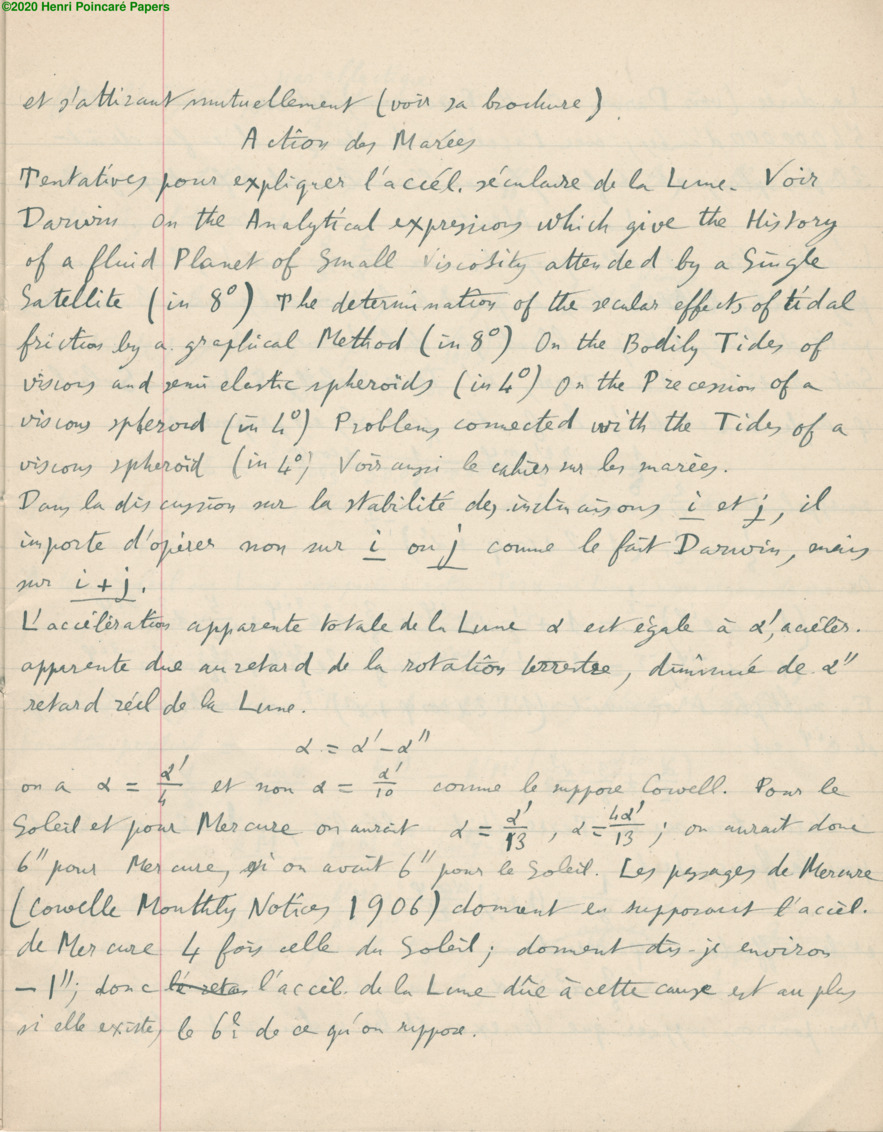 ©2020 Henri Poincaré Papers
et s'attirant mutuellement (voir sa brochure)
Action des Marées
Tentatives pour expliquer l'accél. séculaire de la Lune. Voir
Darwin On the Analytical expressions which give the History
of a fluid Planet of Small Viscosity attended by a Single
Satellite (in 8°) The determination of the secular effects of tidal
friction by a graphical Method (in 8°) On the Bodily Tides of
viscous and semi elastic spheroids (in 4°) On the Precession of a
viscous spheroid (in 4°) Problems connected with the Tides of a
viscous spheroid (in 4°) Voir aussi le cahier sur les marées.
Dans la discussion sur la stabilité des inclinaisons i et j, il
importe d'opérer non sur i ou j comme le fait Darwin, mais
sur i + j.
L'accélération apparente totale de la Lune α est égale à α', accélér.
apparente due au retard de la rotation terrestre, diminué de α''
retard réel de la Lune.
α = α' - α''
on a α = α'/4 et non α = α'/10 comme le suppose Cowell. Pour le
Soleil et pour Mercure on aurait α = α'/13, α = 4α'/13 ; on aurait donc
6'' pour Mercure, si on avait 6'' pour le Soleil. Les passages de Mercure
(Cowelle Monthly Notices 1906) donnent en supposant l'accél.
de Mercure 4 fois celle du Soleil ; donnent dis-je environ
- 1'' ; donc le retar l'accél. de la Lune dûe à cette cause est au plus
si elle existe, le 6e de ce qu'on suppose.